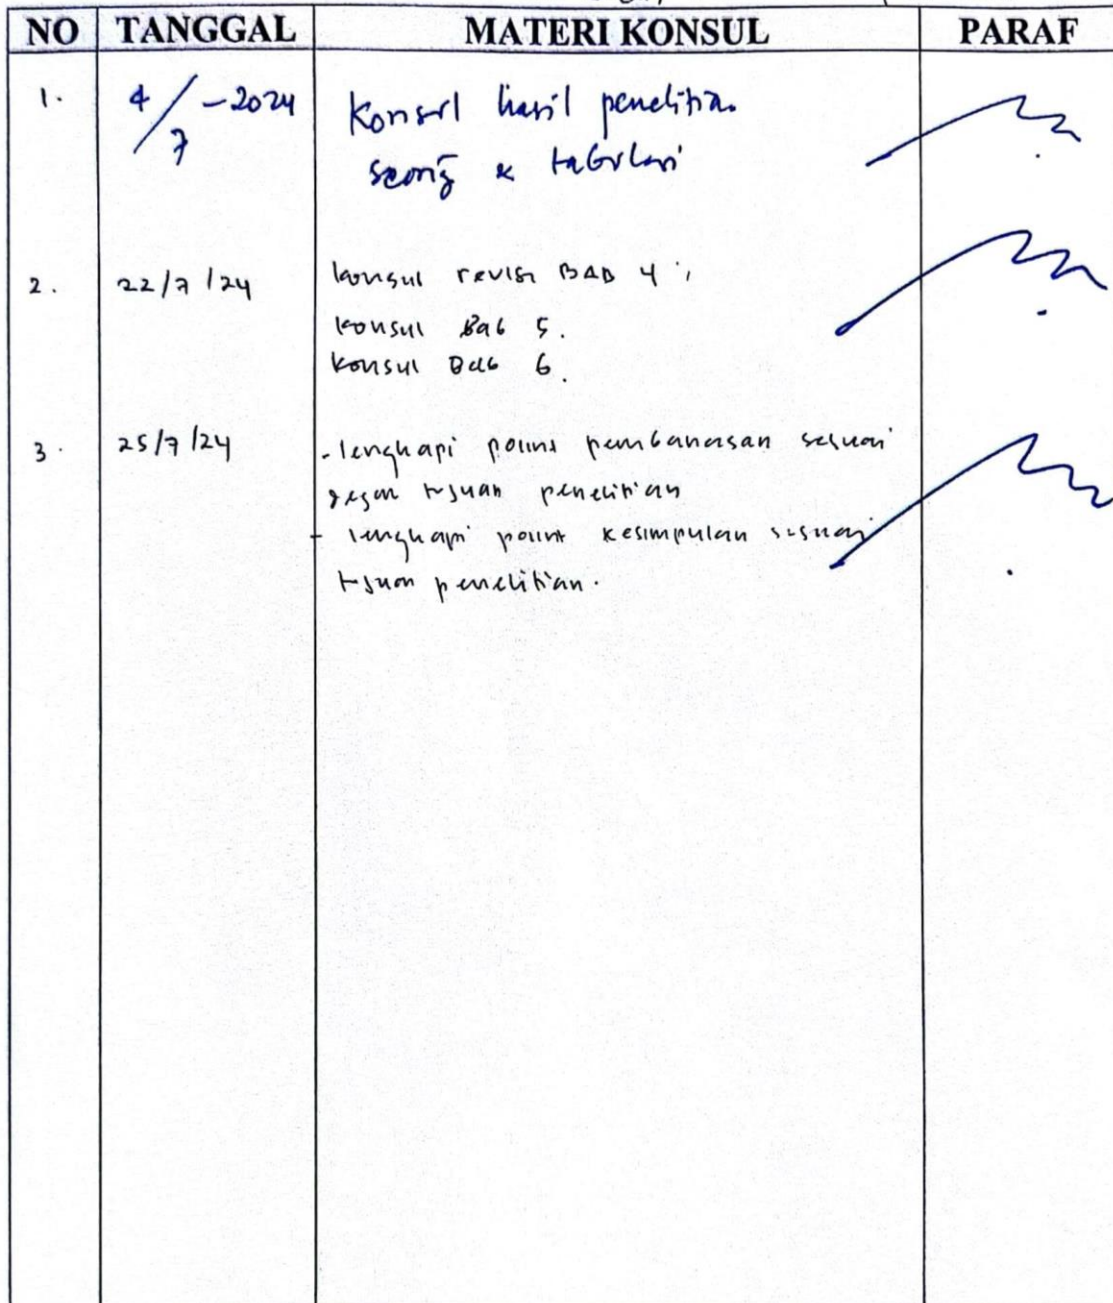 NO TANGGAL MATERI KONSUL PARAF
1. 4/7-2024 Konsul hasil penelitian
scoring & tabulasi
2. 22/7/24 konsul revisi BAB 4
konsul Bab 5.
konsul Bab 6.
3. 25/7/24 - lengkapi point pembahasan sesuai
degan tujuan penelitian
- lengkapi point kesimpulan sesuai
tujuan penelitian.